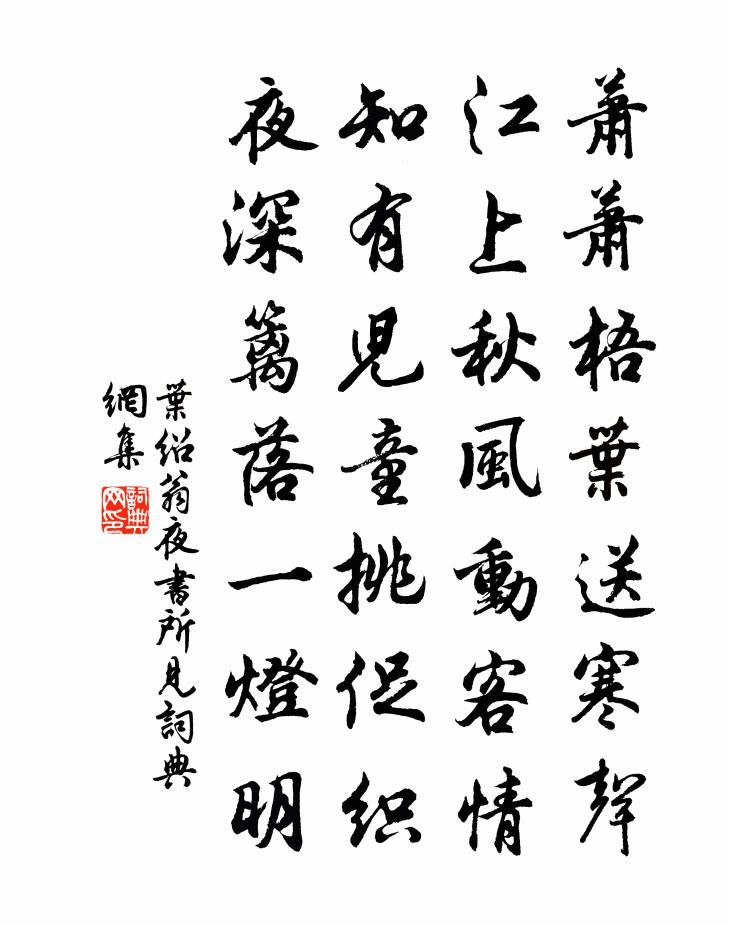 蕭蕭梧葉送寒聲
江上秋風動客情
知有兒童挑促织
夜深籬落一燈明
葉紹翁夜書所見詞典
網集
詞典网印